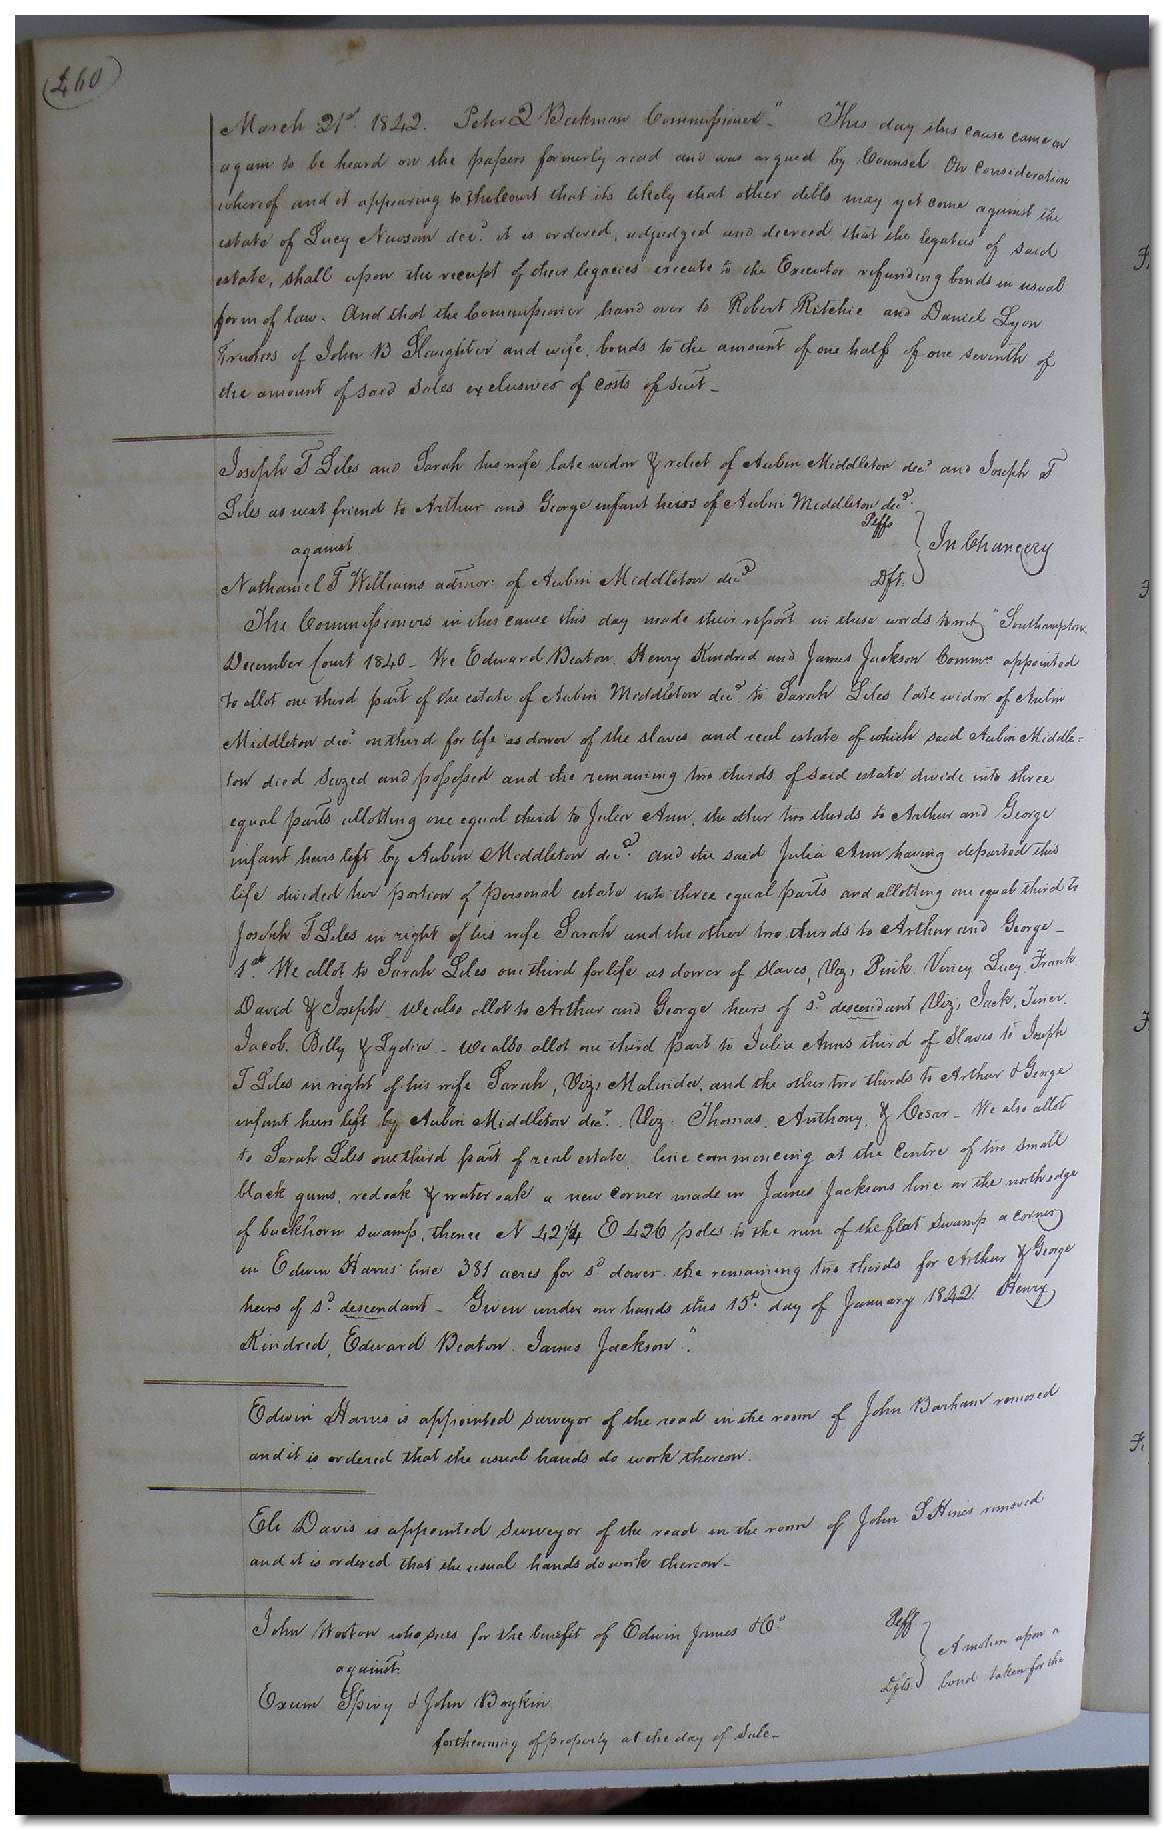 460
March 21st. 1842. Peter Q Beekman Commissioner". This day this cause came on
again to be heard on the papers formerly read and was argued by Counsel. On Consideration
whereof and it appearing to the Court that its likely that other debts may yet come against the
estate of Lucy Newsom decd. it is ordered, adjudged and decreed that the legatees of said
estate, shall upon the receipt of their legacies execute to the Executor refunding bonds in usual
form of law. And that the Commissioner hand over to Robert Ritchie and Daniel Lyon
Trustees of John B Slaughter and wife, bonds to the amount of one half of one seventh of
the amount of said sales exclusives of costs of suit_
Joseph T Liles and Sarah his wife late widow & relict of Aubin Middleton decd and Joseph T
Liles as next friend to Arthur and George infant heirs of Aubin Middleton decd.
Peffs
against
In Chancery
Nathaniel T Williams admor: of Aubin Middleton decd
Dft.
The Commissioners in this cause this day made their report in these words towit "Southampton
December Court 1840_ We Edward Beaton, Henry Kindred and James Jackson Commrs appointed
to allot one third part of the estate of Aubin Middleton decd to Sarah Liles late widow of Aubin
Middleton decd. on third for life as dower of the slaves and real estate of which said Aubin Middle=
ton died seized and possessed and the remaining two thirds of said estate divide into three
equal parts allotting one equal third to Julia Ann, the other two thirds to Arthur and George
infant heirs left by Aubin Middleton decd. and the said Julia Ann having departed this
life divided her portion of personal estate into three equal parts and allotting one equal third to
Joseph T Liles in right of his wife Sarah and the other two thirds to Arthur and George_
1st. We allot to Sarah Liles one third for life as dower of slaves, Viz, Pink. Viney. Lucy. Frank
David & Joseph_ We also allot to Arthur and George heirs of sd. descendant Viz, Jack. Tener.
Jacob. Billy & Lydia_ we also allot one third part to Julia Anns third of Slaves to Joseph
T Liles in right of his wife Sarah, Viz, Malinda, and the other two thirds to Arthur & George
infant heirs left by Aubin Middleton decd. Viz. Thomas. Anthony. & Cesar_ We also allot
to Sarah Liles one third part of real estate. line commencing at the Centre of two small
black gums, red oak & water oak a new corner made in James Jacksons line on the north edge
of buckhorn swamp, thence N 42 1/4 E 426 poles to the run of the flat swamp a corner
in Edwin Harris' line 381 acres for sd dower. the remaining two thirds for Arthur & George
heirs of sd. descendant_ Given under our hands this 15th. day of January 1842. Henry
Kindred, Edward Beaton. James Jackson".
Edwin Harris is appointed surveyor of the road in the room of John Barham removed
and it is ordered that the usual hands do work thereon.
Eli Davis is appointed surveyor of the road in the room of John S Hines removed
and it is ordered that the usual hands do work thereon_
John Norton who sues for the benefit of Edwin James & Co.
Peff
against.
A motion upon a
Exum Spivy & John Boykin
Dfts.
bond taken for the
forthcoming of property at the day of sale_